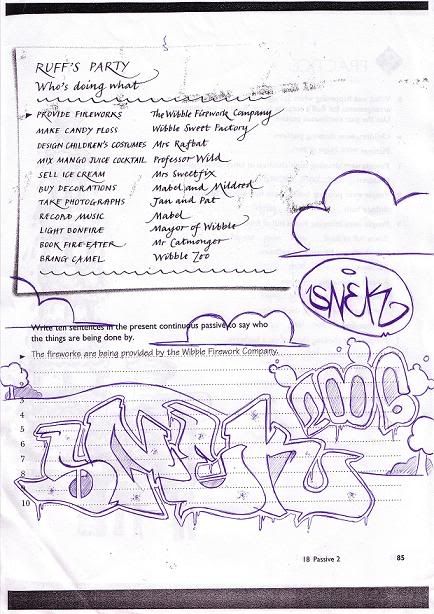 RUFF'S PARTY
Who's doing what
▶ PROVIDE FIREWORKS The Wibble Firework Company
MAKE CANDY FLOSS Wibble Sweet Factory
DESIGN CHILDREN'S COSTUMES Mrs Rafbat
MIX MANGO JUICE COCKTAIL Professor Wild
SELL ICE CREAM Mrs Sweetfix
BUY DECORATIONS Mabel and Mildred
TAKE PHOTOGRAPHS Jan and Pat
RECORD MUSIC Mabel
LIGHT BONFIRE Mayor of Wibble
BOOK FIRE-EATER Mr Catmonger
BRING CAMEL Wibble Zoo
SNEK
Write ten sentences in the present continuous passive to say who
the things are being done by.
▶ The fireworks are being provided by the Wibble Firework Company.
3
4
5
6
7
8
9
10
SNEK
18 Passive 2 85